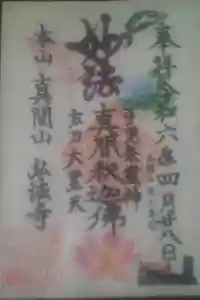 奉拝 令和六年四月廿八日
妙法
真間釈迦佛
太刀大黒天
本山 真間山 弘法寺